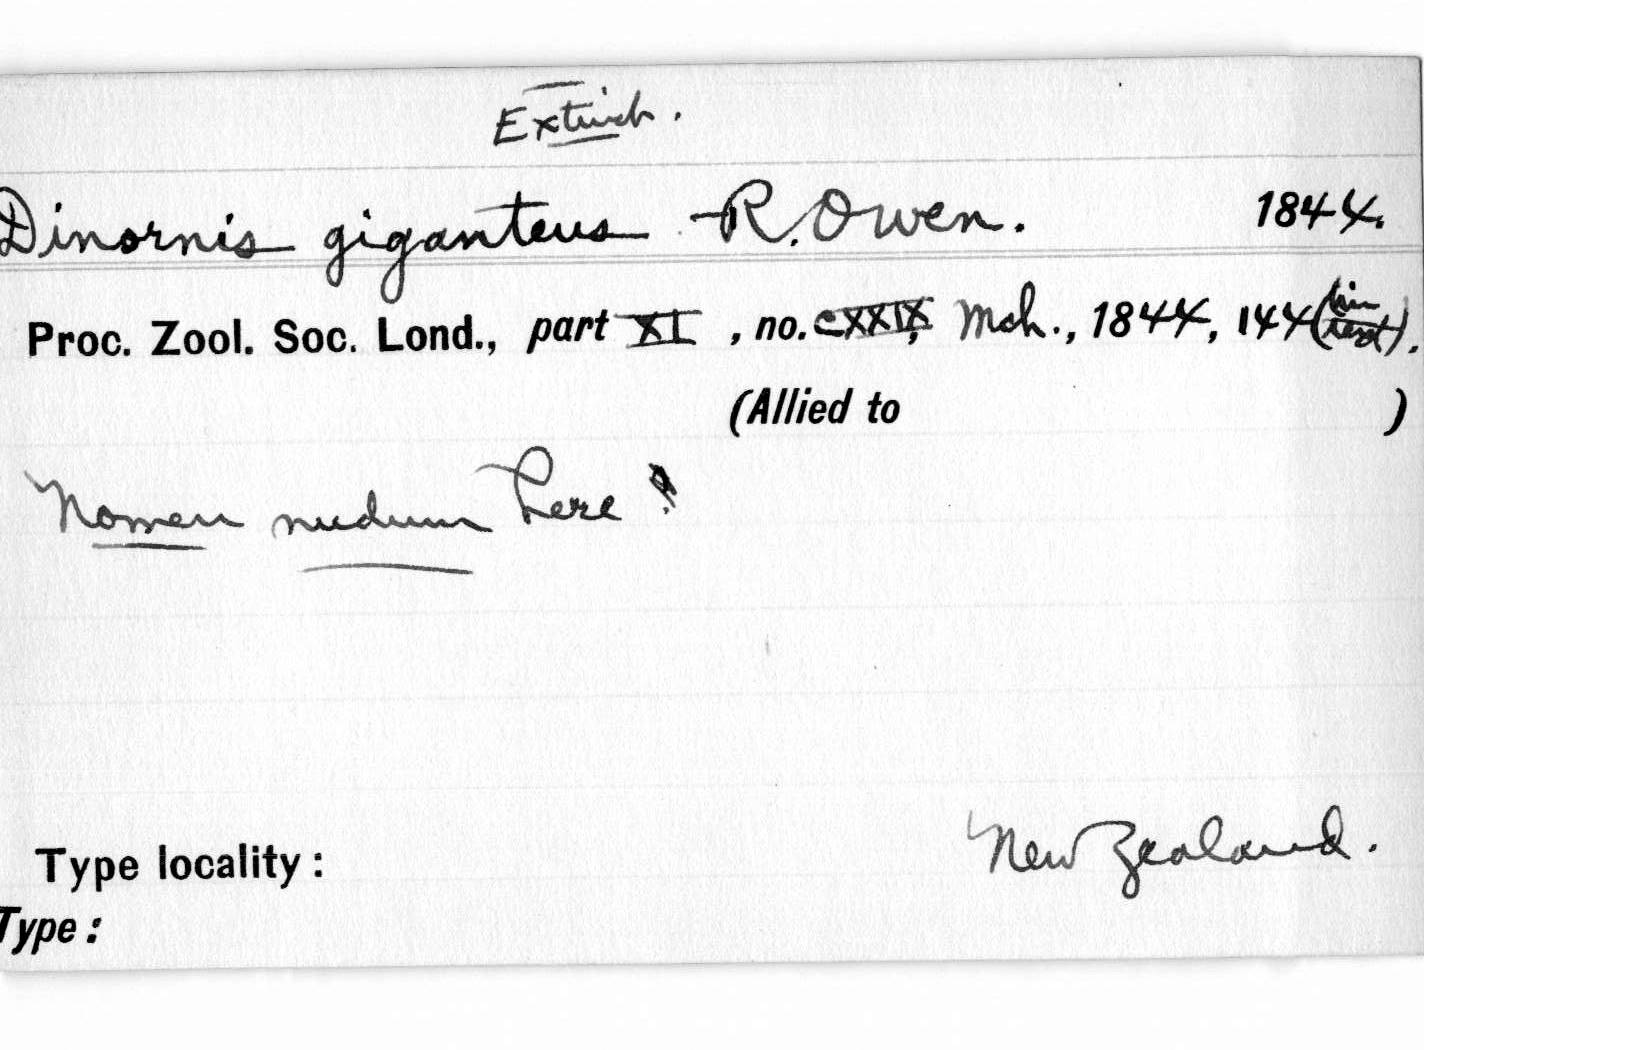 Extinct.
Dinornis giganteus R. Owen. 1844.
Proc. Zool. Soc. Lond., part XI, no. CXXIX, Mch., 1844, 144 (in text).
(Allied to )
Nomen nudum here!
Type locality: New Zealand.
Type: